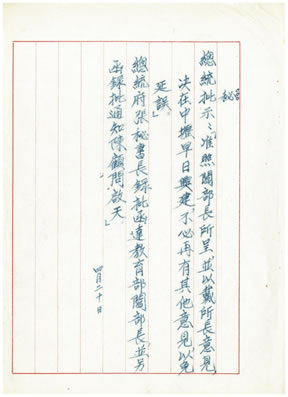 總統批示：「准照閻部長所呈並以戴所長意見
決在中壢早日興建，不必再有其他意見以免
延誤。」
總統府張秘書長錄批函達教育部閻部長並另
函錄批通知陳顧問啟天」
四月二十日